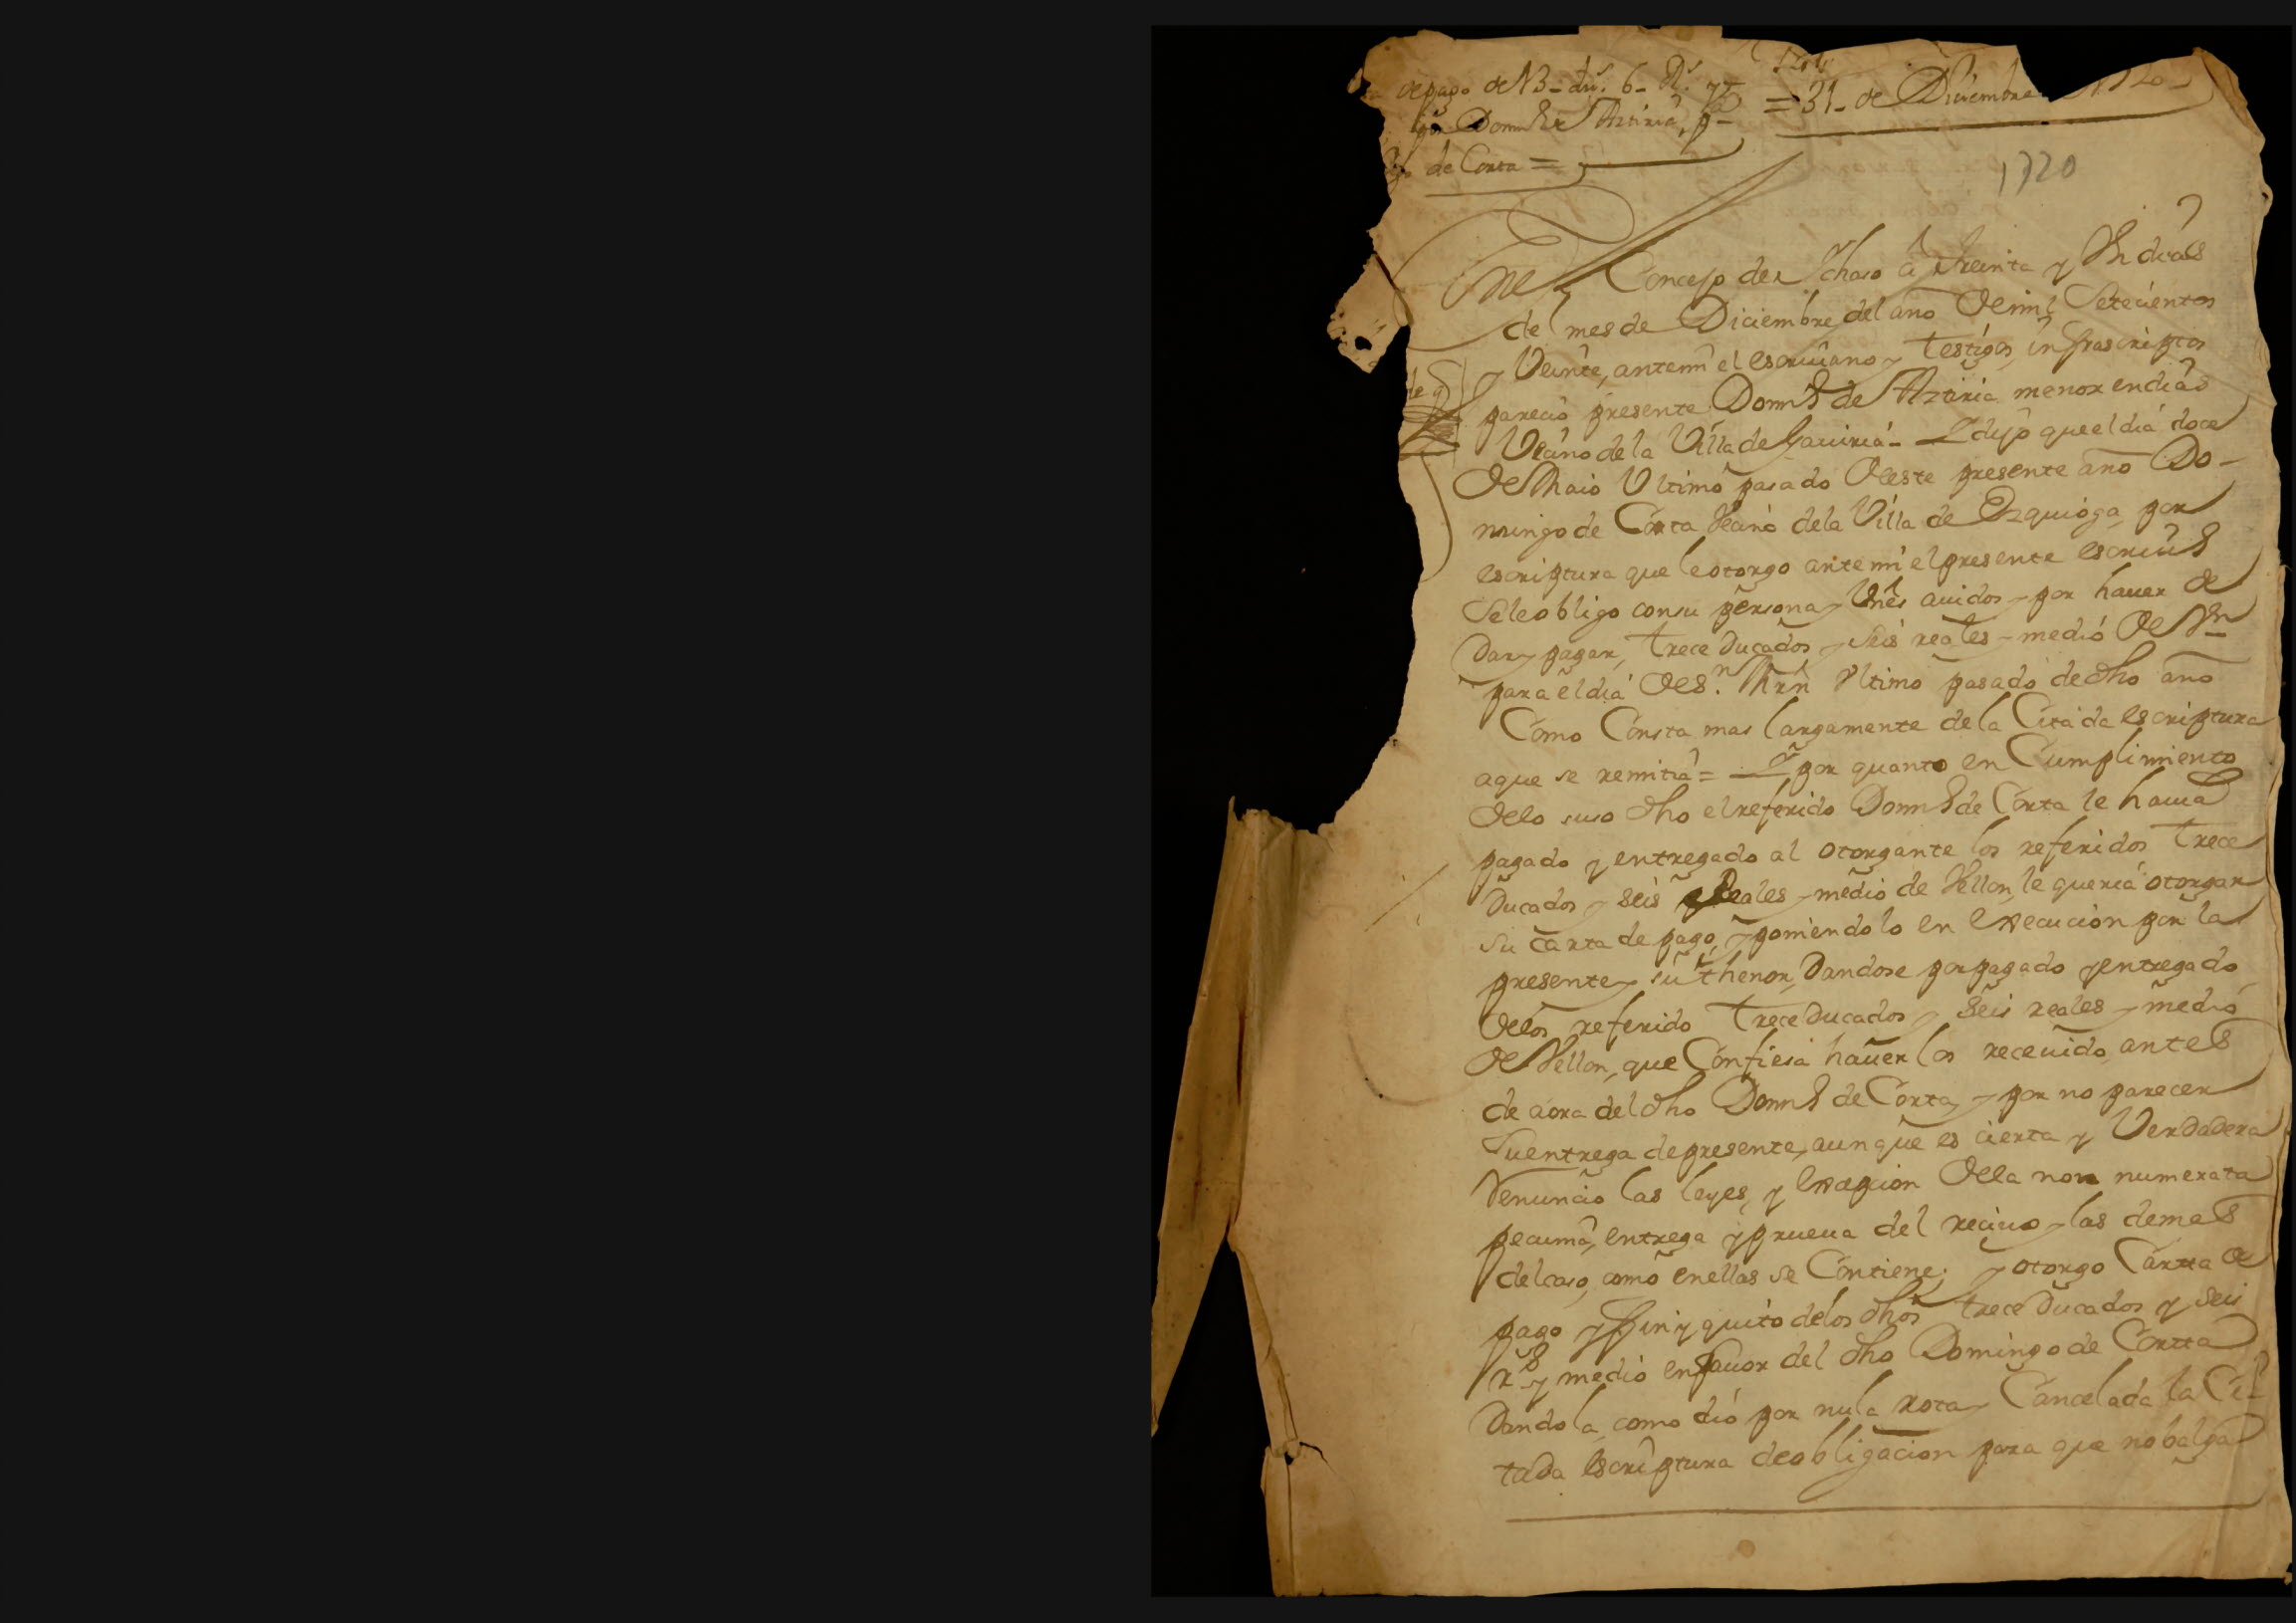 de pago de 13_ dus. 6_ Rs. y
= 31_ de Diciembre 1720_
por Domgo Aztiria, pa
de Corta =
1720
En el Concejo de Ichaso â treinta y Un dias
del mes de Diciembre del año de mil Setecientos
y Veinte, antemi el escriuano y testigos infrascriptos
parecio presente Domgo de Aztiria menor en dias
Vecino de la Villa de Gauiria_ Y dijo que el dia doce
de Maio Ultimo pasado deste presente año Do-
mingo de Corta Vecino de la Villa de Ezquioga, por
escriptura que le otorgo ante mi el presente escriuo
Se le obligo con su persona y Vnes auidos y por hauer de
Dar y pagar, trece Ducados y seis reales y medio de Vn
para el dia de Sn. Mrn Vltimo pasado de dho año
Como Consta mas largamente de la Citada escriptura
a que se remitia = Y por quanto en Cumplimiento
de lo suso dho el referido Domgo de Corta le hauia
pagado y entregado al otorgante los referidos trece
Ducados y seis Reales y medio de Vellon, le queria otorgar
su carta de pago, y poniendolo en execucion por la
presente y su thenor, Dandose por pagado y entregado
de los referido trece Ducados y seis reales y medio
de Vellon, que Confiesa hauer los receuido antes
de aora del dho Domgo de Corta, y por no parecer
su entrega de presente, aunque es cierta y Verdadera
Renuncio las leyes, y excepcion de la non numerata
pecunia, entrega y prueua del reciuo y las demas
del caso, como en ellas se Contiene; y otorgo Carta de
pago y fin y quito de los dhos trece Ducados y seis
rs y medio en fauor del dho Domingo de Cortta
Dandola, como dio por nula rota y Cancelada la Ci-
tada escriptura de obligacion para que no balga